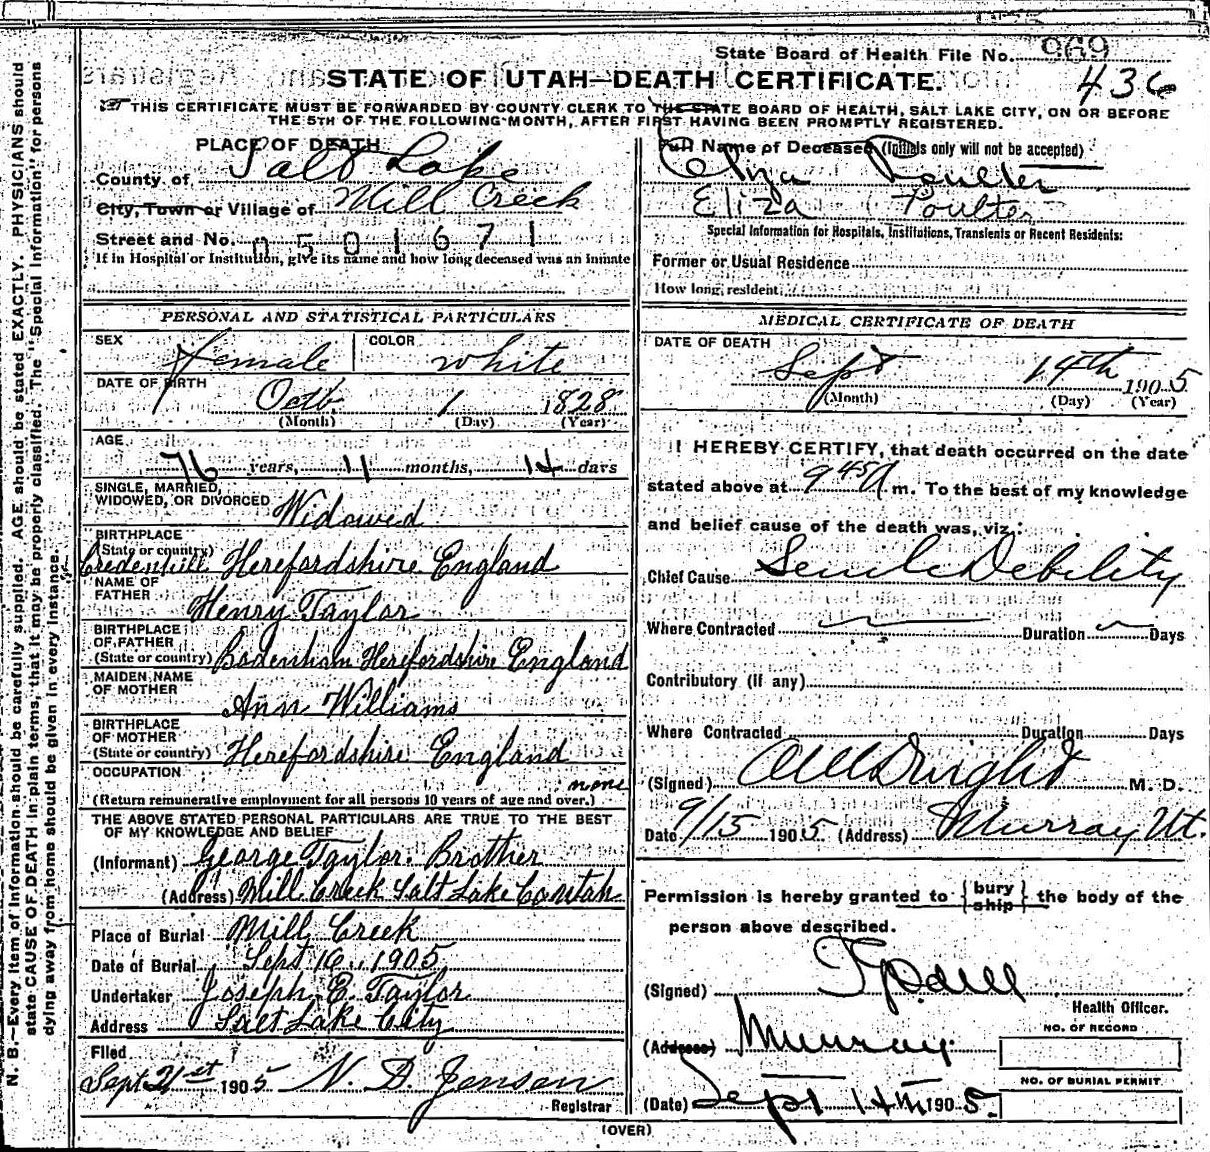 State Board of Health File No. 969
436
STATE OF UTAH—DEATH CERTIFICATE.
THIS CERTIFICATE MUST BE FORWARDED BY COUNTY CLERK TO THE STATE BOARD OF HEALTH, SALT LAKE CITY, ON OR BEFORE
THE 5TH OF THE FOLLOWING MONTH, AFTER FIRST HAVING BEEN PROMPTLY REGISTERED.
N. B.—Every item of information should be carefully supplied. AGE should be stated EXACTLY. PHYSICIANS should
state CAUSE OF DEATH in plain terms, that it may be properly classified. The "Special Information" for persons
dying away from home should be given in every instance.
PLACE OF DEATH
County of Salt Lake
City, Town or Village of Mill Creek
Street and No. 0501671
If in Hospital or Institution, give its name and how long deceased was an inmate
PERSONAL AND STATISTICAL PARTICULARS
SEX female COLOR white
DATE OF BIRTH Octb. 1 1828
(Month) (Day) (Year)
AGE
76 years, 11 months, 14 days
SINGLE, MARRIED,
WIDOWED, OR DIVORCED Widowed
BIRTHPLACE
(State or country) Credenhill Herefordshire England
NAME OF
FATHER Henry Taylor
BIRTHPLACE
OF FATHER
(State or country) Bodenham Herefordshire England
MAIDEN NAME
OF MOTHER Ann Williams
BIRTHPLACE
OF MOTHER
(State or country) Herefordshire England
OCCUPATION none
(Return remunerative employment for all persons 10 years of age and over.)
THE ABOVE STATED PERSONAL PARTICULARS ARE TRUE TO THE BEST
OF MY KNOWLEDGE AND BELIEF
(Informant) George Taylor. Brother
(Address) Mill Creek Salt Lake Co Utah
Place of Burial Mill Creek
Date of Burial Sept 16, 1905
Undertaker Joseph E. Taylor
Address Salt Lake City
Filed
Sept 21st 1905 N. D. Jenson
Registrar
Full Name of Deceased (Initials only will not be accepted)
Eliza Poulter
Eliza Poulter
Special Information for Hospitals, Institutions, Transients or Recent Residents:
Former or Usual Residence
How long resident
MEDICAL CERTIFICATE OF DEATH
DATE OF DEATH
Sept 14th 1905
(Month) (Day) (Year)
I HEREBY CERTIFY, that death occurred on the date
stated above at 9 45 A m. To the best of my knowledge
and belief cause of the death was, viz.:
Chief Cause Senile Debility
Where Contracted Duration Days
Contributory (if any)
Where Contracted Duration Days
(Signed) M. D.
Date 9/15 1905 (Address) Murray Ut.
Permission is hereby granted to {bury ship} the body of the
person above described.
(Signed)
Health Officer.
(Address) Murray
NO. OF RECORD
NO. OF BURIAL PERMIT
(Date) Sept 14th 1905.
(OVER)